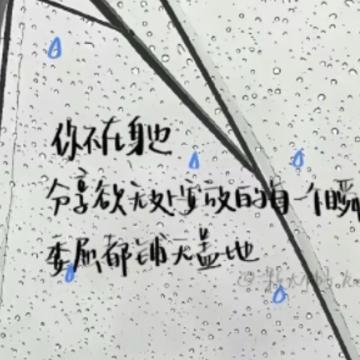 你不在身边
分享欲无处安放的每一个瞬
委屈都铺天盖地